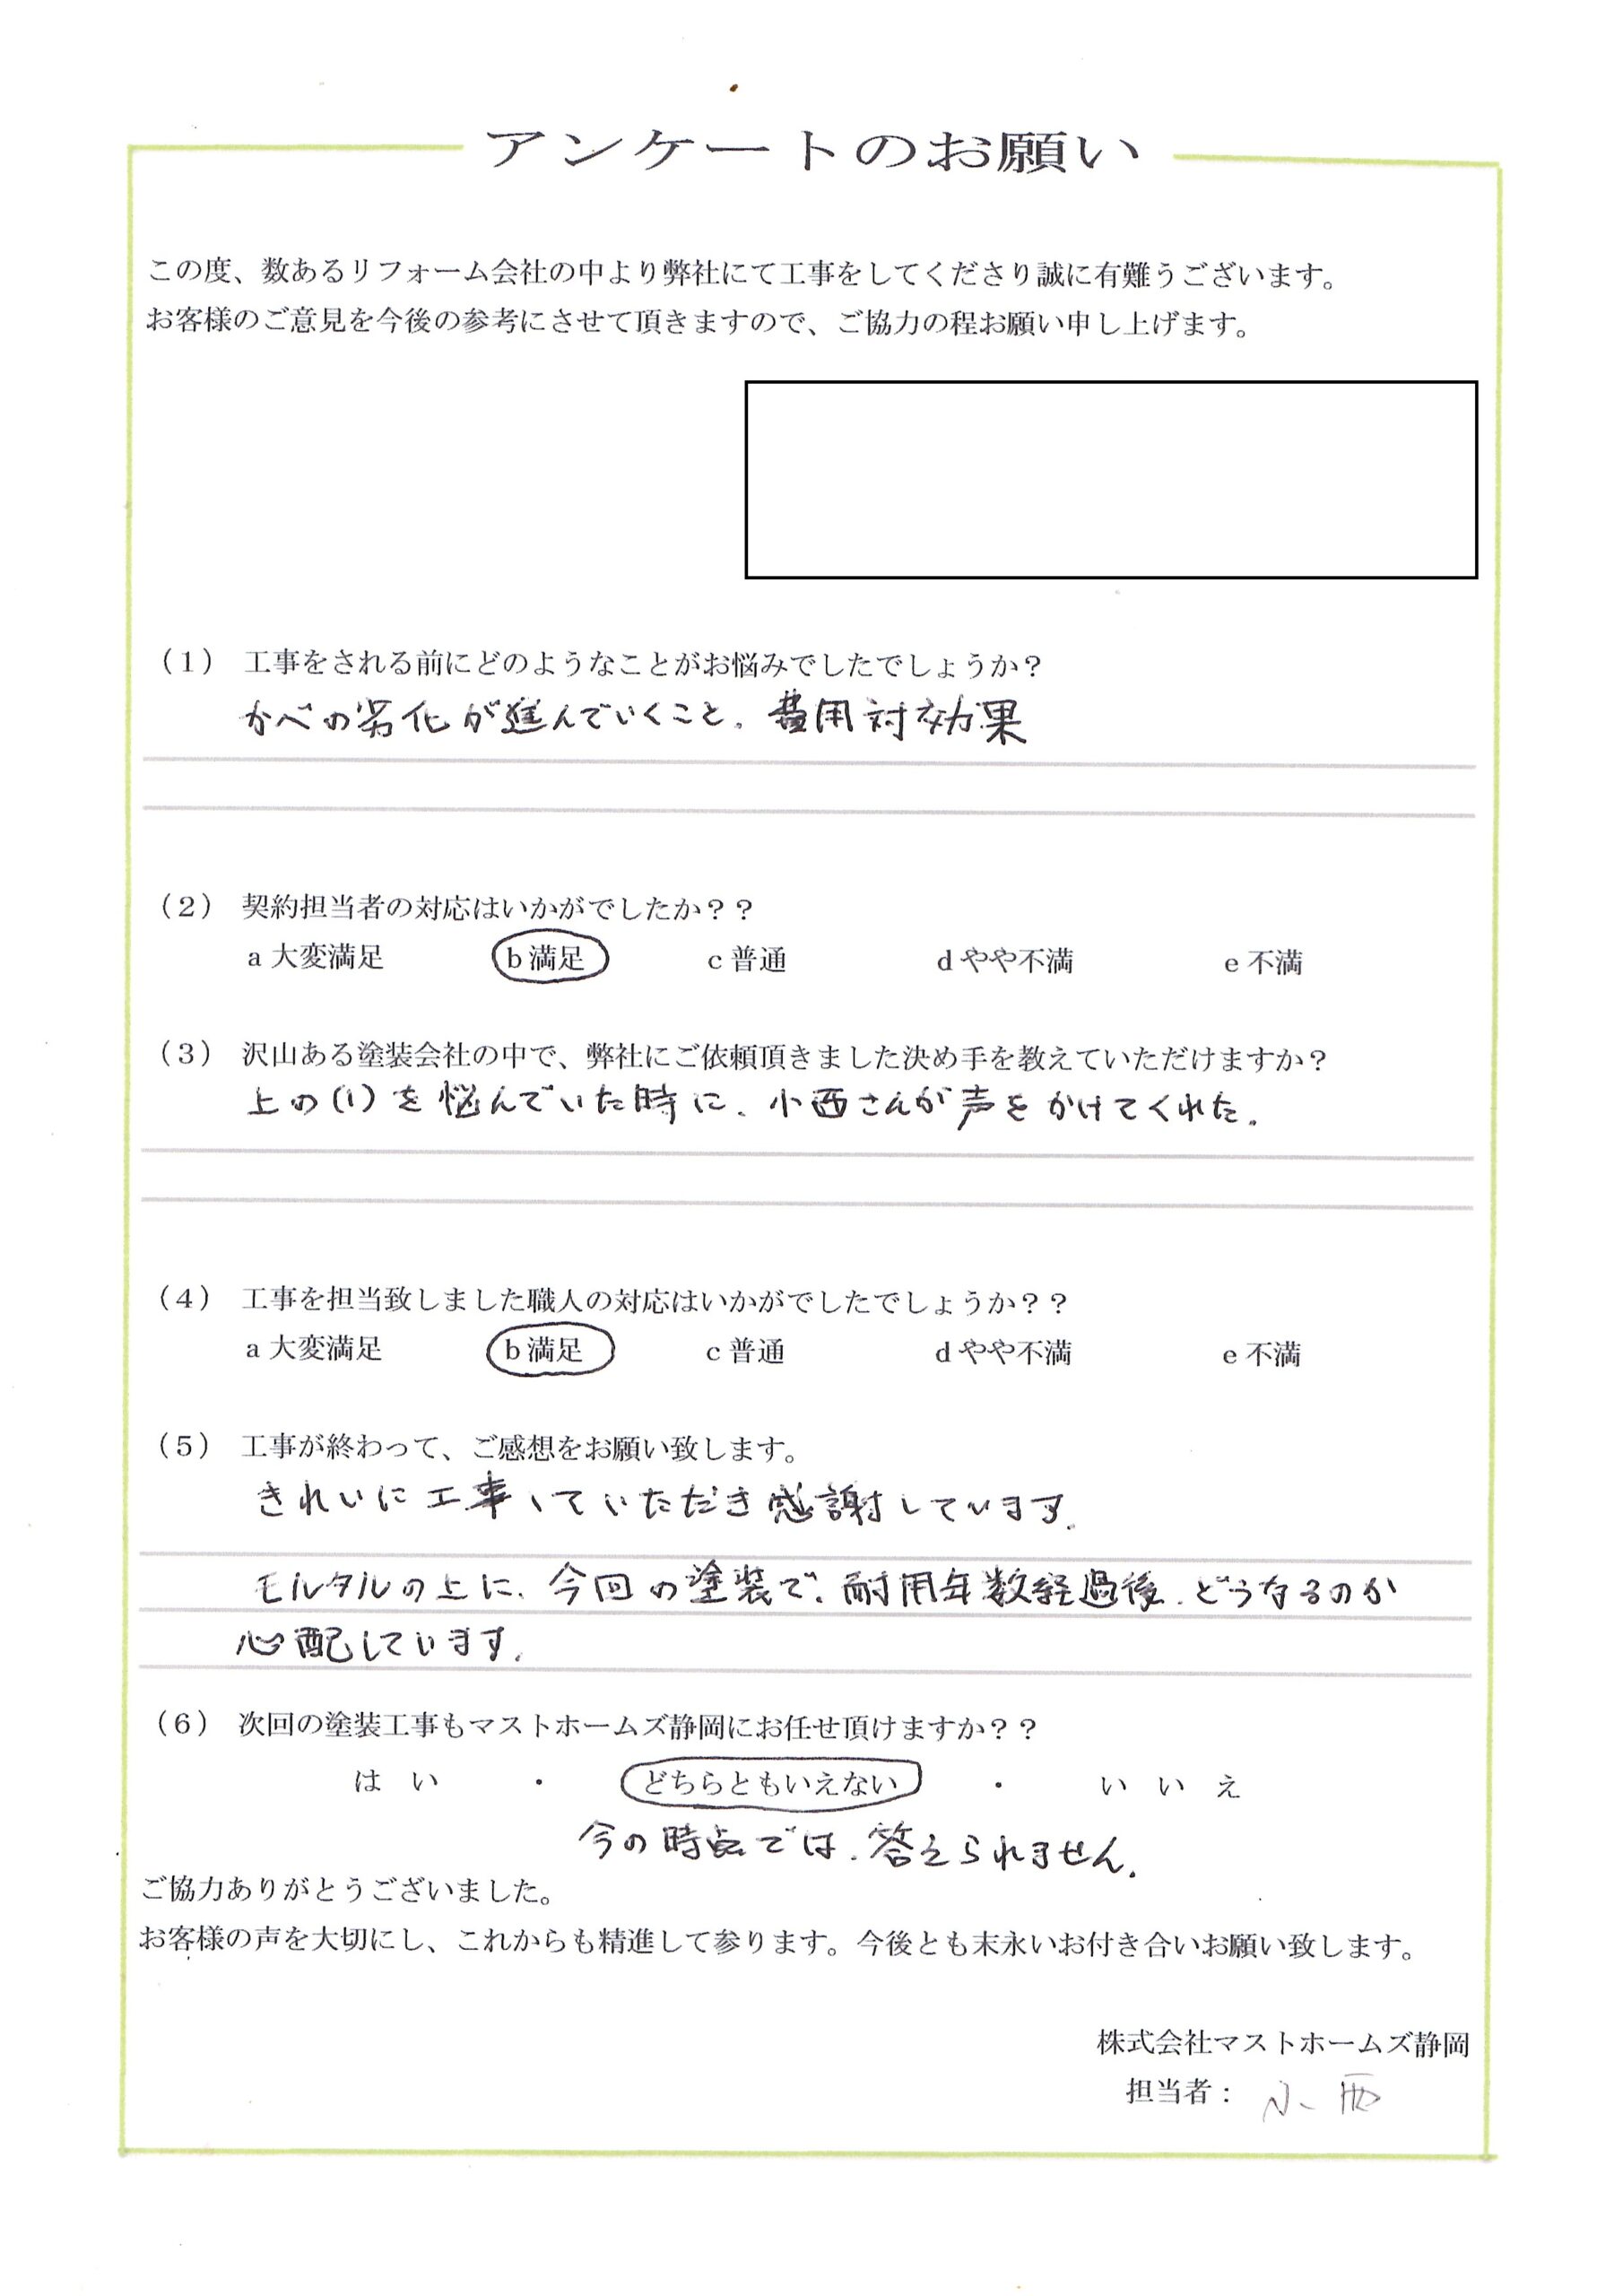 アンケートのお願い
この度、数あるリフォーム会社の中より弊社にて工事をしてくださり誠に有難うございます。
お客様のご意見を今後の参考にさせて頂きますので、ご協力の程お願い申し上げます。
（1） 工事をされる前にどのようなことがお悩みでしたでしょうか？
かべの劣化が進んでいくこと、費用対効果
（2） 契約担当者の対応はいかがでしたか？？
a 大変満足 b 満足 c 普通 d やや不満 e 不満
（3） 沢山ある塗装会社の中で、弊社にご依頼頂きました決め手を教えていただけますか？
上の(1)を悩んでいた時に、小西さんが声をかけてくれた。
（4） 工事を担当致しました職人の対応はいかがでしたでしょうか？？
a 大変満足 b 満足 c 普通 d やや不満 e 不満
（5） 工事が終わって、ご感想をお願い致します。
きれいに工事していただき感謝しています。
モルタルの上に、今回の塗装で、耐用年数経過後、どうなるのか
心配しています。
（6） 次回の塗装工事もマストホームズ静岡にお任せ頂けますか？？
はい ・ どちらともいえない ・ いいえ
今の時点では、答えられません。
ご協力ありがとうございました。
お客様の声を大切にし、これからも精進して参ります。今後とも末永いお付き合いお願い致します。
株式会社マストホームズ静岡
担当者： 小西